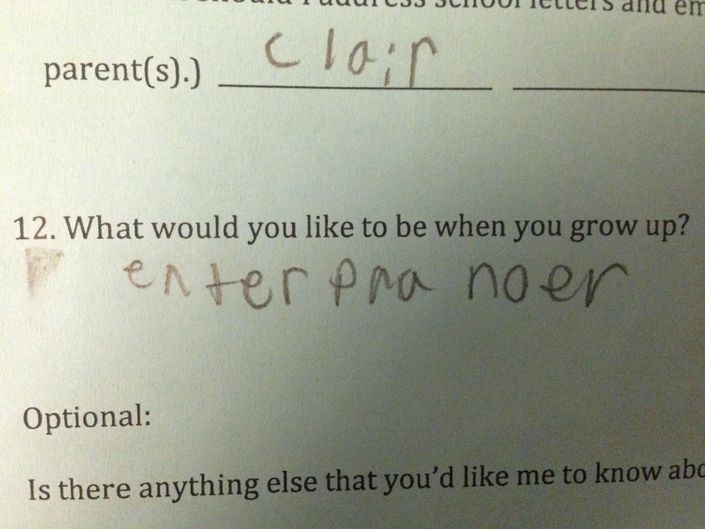 should I address school letters and em
parent(s).) Clair
12. What would you like to be when you grow up?
enter pra noer
Optional:
Is there anything else that you'd like me to know abo